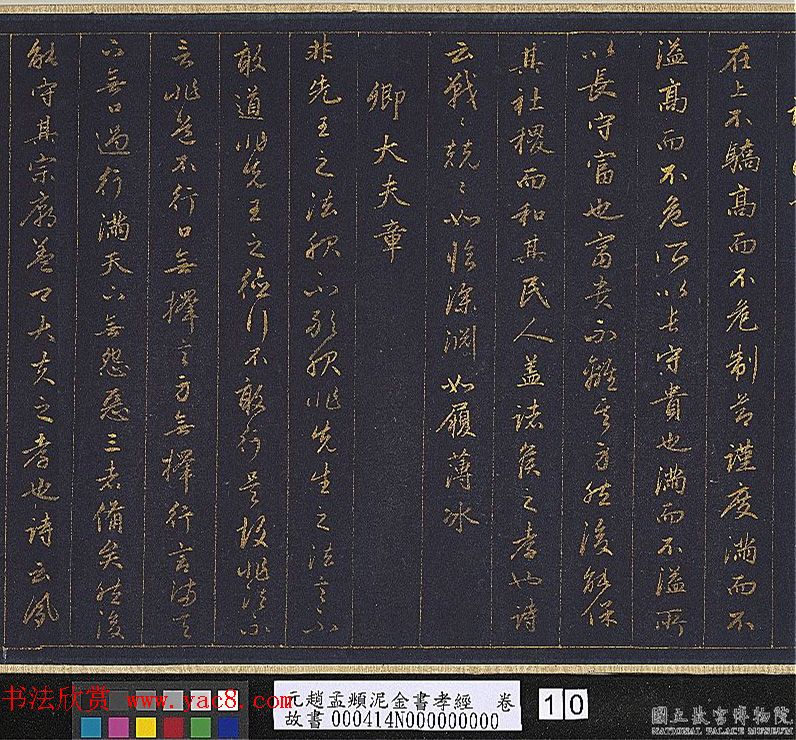 在上不驕高而不危制節謹度滿而不
溢高而不危所以長守貴也滿而不溢所
以長守富也富貴不離其身然後能保
其社稷而和其民人蓋諸侯之孝也詩
云戰〻兢〻如臨深淵如履薄冰
卿大夫章
非先王之法服不敢服非先生之法言不
敢道非先王之德行不敢行是故非法不
言非道不行口無擇言身無擇行言滿天
下無口過行滿天下無怨惡三者備矣然後
能守其宗廟蓋卿大夫之孝也詩云夙
书法欣赏 www.yac8.com
元趙孟頫泥金書孝經 卷
故書 000414N000000000
10
國立故宮博物院
NATIONAL PALACE MUSEUM